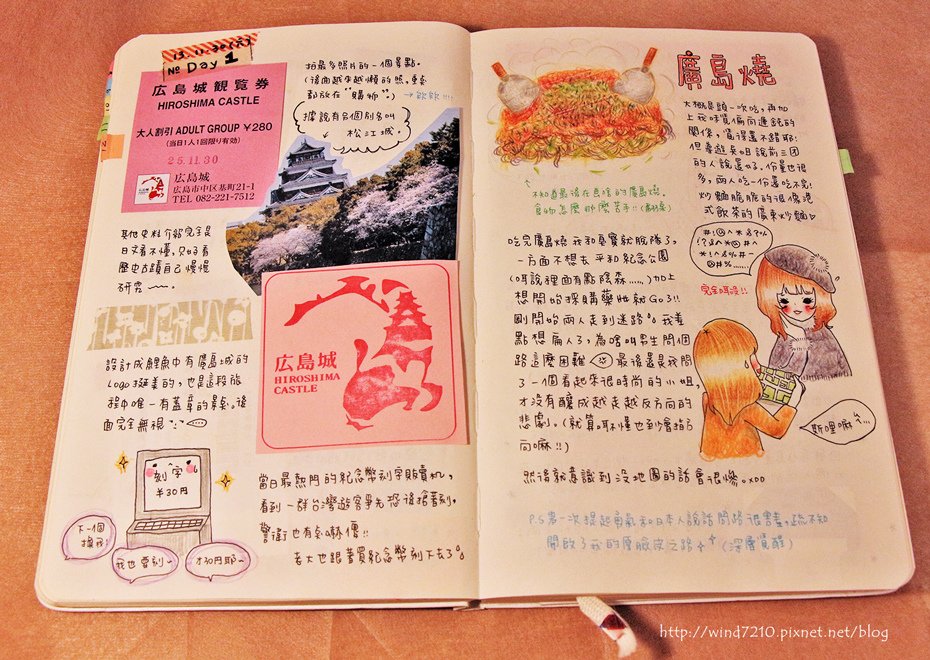 13.11.30(六)
No Day 1
広島城観覧券
HIROSHIMA CASTLE
大人割引 ADULT GROUP ¥280
(当日1人1回限り有効)
25.11.30
広島城
広島市中区基町21-1
TEL 082-221-7512
拍最多照片的一個景點。
(後面越來越懶的照,重點
都放在"購物"。) →欸欸!…
據說有名個別名叫
松江城。
其他史料介紹完全是
日文看不懂,只好看
歷史古蹟自己慢慢
研究
広島城
HIROSHIMA
CASTLE
設計成鯉魚中有廣島城的
Logo挺美的,也是這段旅
程中唯一有蓋章的景點。後
面完全無視
刻字
¥30円
下一個
換我!
我也要刻~
才30円耶~
當日最熱門的紀念幣刻字販賣机,
看到一群台灣遊客爭先恐後搶著刻,
警衛也有點嚇傻!!
老大也跟著買紀念幣刻下去了。
廣島燒
不知道最後在良啥的廣島燒。
食物怎麼那麼苦手!!
大概是頭一次吃,再加
上我味覺偏向遲鈍的
關係,覺得還不錯耶!
但導遊桑回說前三團
的人說還好。份量也很
多,兩人吃一份還吃不完!
炒麵脆脆的很像港
式飲茶的廣東炒麵
吃完廣島燒 我和真實就脫隊了。
一方面不想去平和紀念公園
(耳說裡面有點陰森……)加上
想開始採購藥妝就Go了!!
剛開始兩人走到迷路。我差
點想扁人了,為啥叫男生問個
路這麼困難 最後還是我問
了一個看起來很時尚的小姐,
才沒有釀成越走越反方向的
悲劇。(就算聽不懂也到會指方
向嘛!!)
完全聽沒!!
斯哩嘛~…
然後就意識到沒地圖的話會很慘。xDD
P.S 第一次提起勇氣和日本人說話問路很害羞,疏不知
開啟了我的厚臉皮之路 (深層覺醒)
http://wind7210.pixnet.net/blog